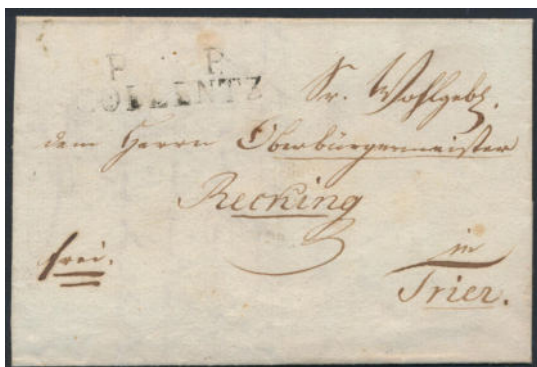 P. P.
COBLENTZ
Sr. Wohlgeb.
dem Herrn Oberbürgermeister
Recking
frei.
in
Trier.